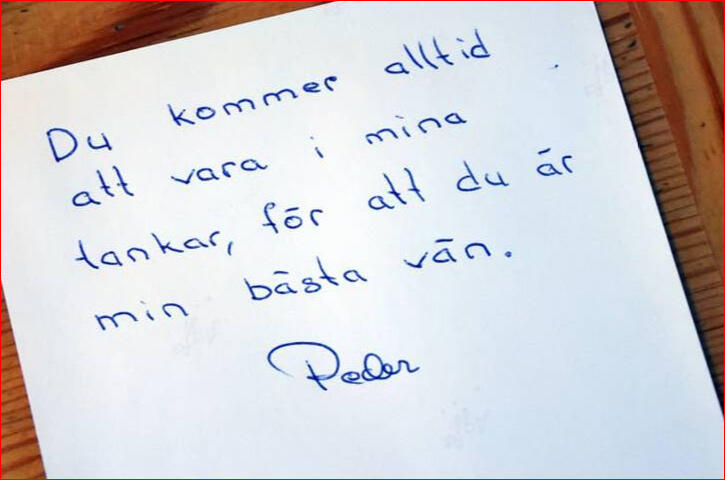 Du kommer alltid
att vara i mina
tankar, för att du är
min bästa vän.
Peder